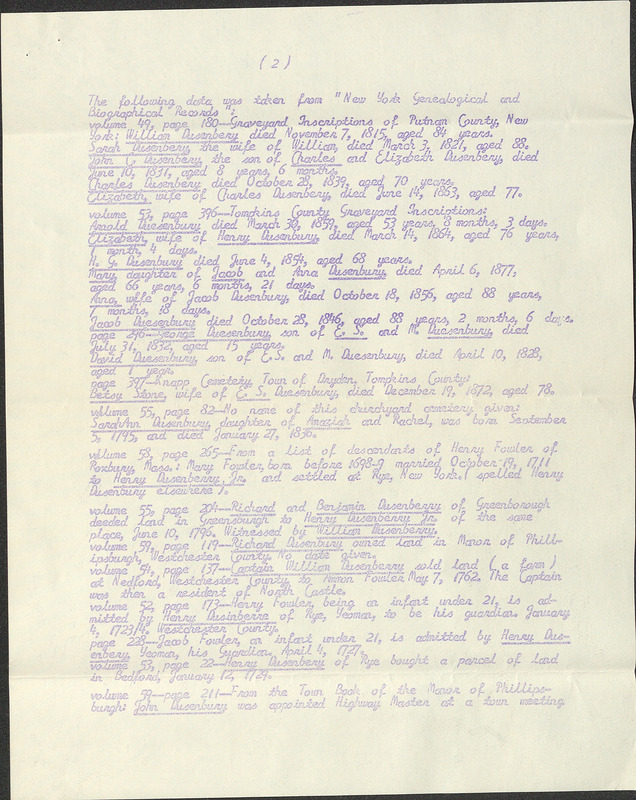 (2)
The following data was taken from "New York Genealogical and
Biographical Records":
volume 49, page 180--Graveyard Inscriptions of Putnam County, New
York: William Dusenbery died November 7, 1815, aged 84 years.
Sarah Dusenbery, the wife of William, died March 3, 1821, aged 88.
John C. Dusenbery, the son of Charles and Elizabeth Dusenbery, died
June 10, 1831, aged 8 years, 6 months.
Charles Dusenbery died October 28, 1839, aged 70 years.
Elizabeth, wife of Charles Dusenbery, died June 14, 1863, aged 77.
volume 53, page 396--Tompkins County Graveyard Inscriptions:
Arnold Duesenbury died March 30, 1859, aged 53 years, 8 months, 3 days.
Elizabeth, wife of Henry Dusenbury, died March 14, 1864, aged 76 years,
month, 4 days.
H. G. Dusenbury died June 4, 1854, aged 68 years.
Mary, daughter of Jacob and Anna Dusenbury, died April 6, 1877,
aged 66 years, 6 months, 21 days.
Anna, wife of Jacob Dusenbury, died October 18, 1856, aged 88 years,
months, 18 days.
Jacob Duesenbury died October 28, 1846, aged 88 years, 2 months, 6 days.
page 296--George Duesenbury, son of C. S. and M. Duesenbury, died
July 31, 1832, aged 15 years.
David Duesenbury, son of C.S. and M. Duesenbury, died April 10, 1828,
aged 1 year.
page 397--Knapp Cemetety, Town of Dryden, Tompkins County:
Betsy Stone, wife of C. S. Duesenbury, died December 19, 1872, aged 78.
volume 55, page 82--No name of this churchyard cemetery given:
SarahAnn Dusenbury, daughter of Amaziah and Rachel, was born September
5, 1795, and died January 27, 1836.
volume 58, page 265--From a list of descendants of Henry Fowler of
Roxbury, Mass.: Mary Fowler, born before 1698-9 married October 19, 1711
to Henry Dusenberry, Jr. and settled at Rye, New York. ( spelled Henry
Dusenbury elsewhere ).
volume 55, page 204--Richard and Benjamin Dusenberry of Greenborough
deeded land in Greensburgh to Henry Dusenberry Jr. of the same
place, June 10, 1796. Witnessed by William Dusenberry.
volume 59, page 119--Richard Dusenbury owned land in Manor of Phill-
ipsburgh, Westchester County. No date given.
volume 54, page 137--Captain William Dusenbery sold land ( a farm )
at Nedford, Westchester County, to Ammon Fowler May 7, 1762. The Captain
was then a resident of North Castle.
volume 52, page 173--Henry Fowler, being an infant under 21, is ad-
mitted by Henry Dusinberre of Rye, Yeoman, to be his guardian. January
4, 1723/4. Westchester County.
page 228--Jacob Fowler, an infant under 21, is admitted by Henry Dus-
enbery, Yeoman, his Guardian. April 4, 1727.
volume 53, page 22--Henry Dusenbery of Rye bought a parcel of land
in Bedford, January 12, 1724.
volume 59--page 211--From the Town Book of the Manor of Phillips-
burgh: John Dusenbury was appointed Highway Master at a town meeting